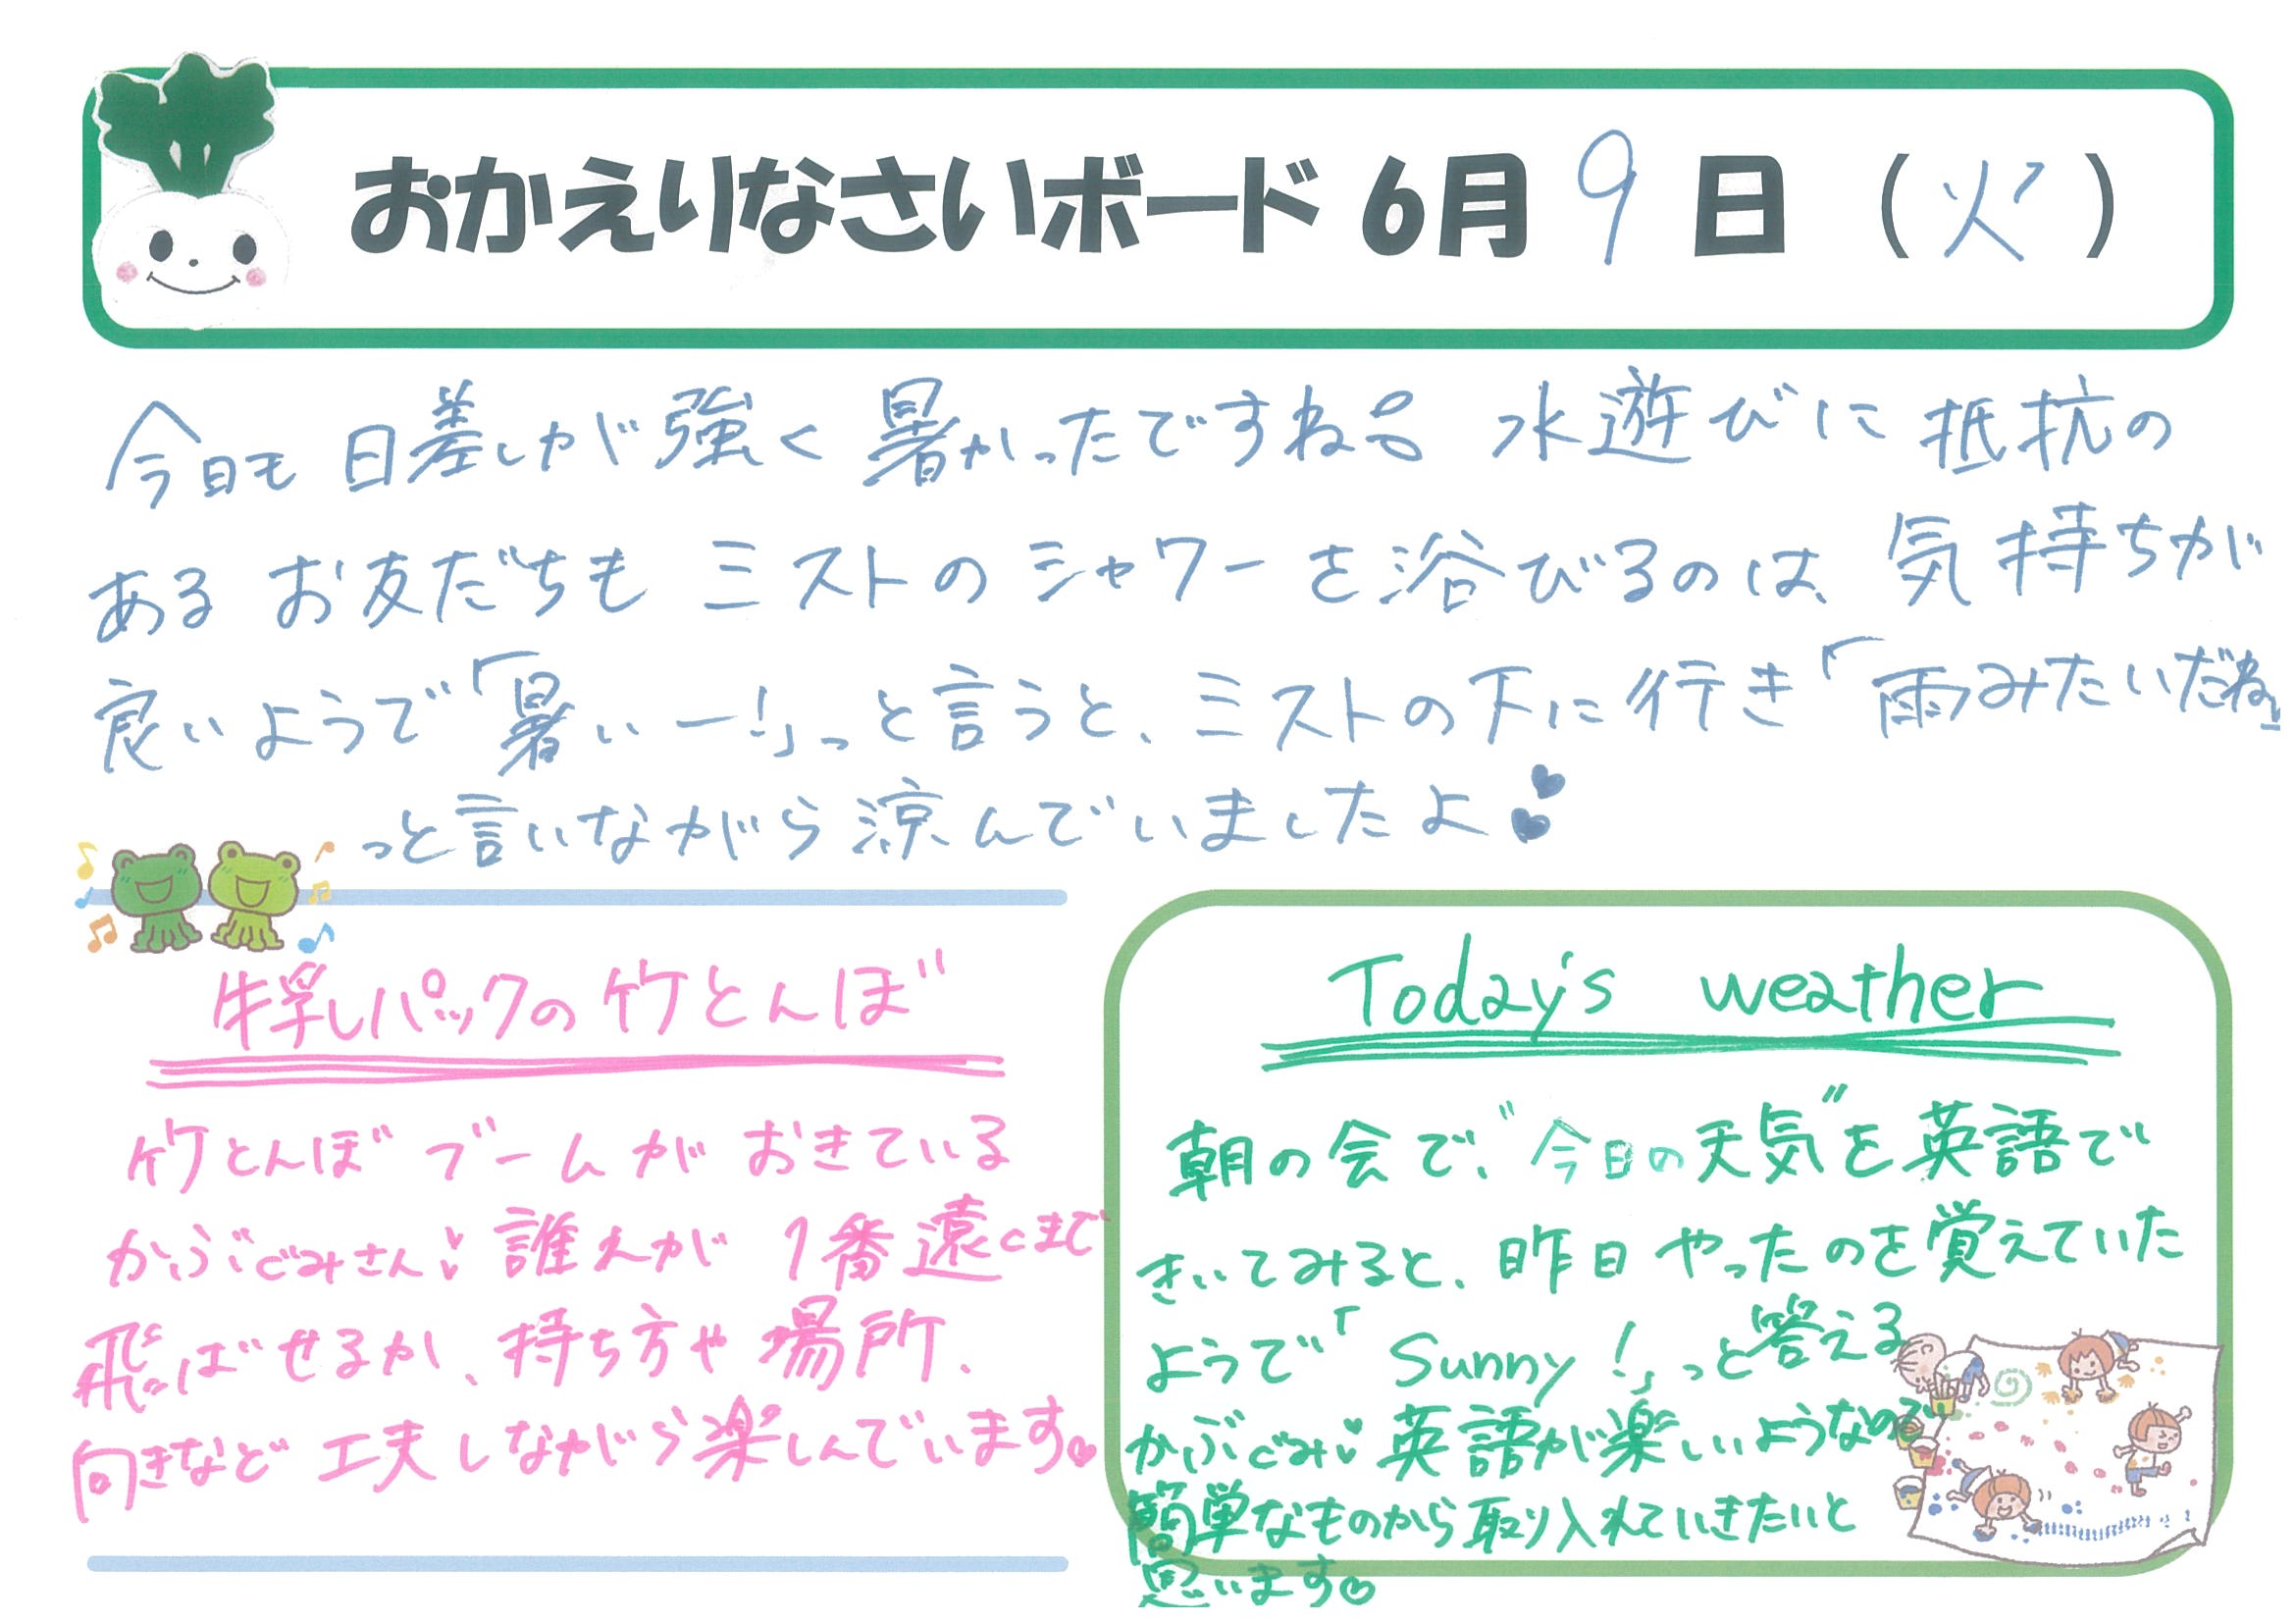 おかえりなさいボード 6月 9 日 (火)
今日も 日差しが 強く 暑かったですね。 水遊びに 抵抗の
ある お友だちも ミストの シャワーを浴びるのは、気持ちが
良いようで「暑いー!」っと言うと、ミストの下に行き「雨みたいだね」
っと言いながら涼んでいましたよ♥
牛乳パックの竹とんぼ
竹とんぼ ブームが おきている
かぶぐみさん♥ 誰れが 1番遠くまで
飛ばせるか、持ち方や場所、
向きなど 工夫しながら楽しんでいます♡
Today's weather
朝の会で、"今日の天気"を英語で
きいてみると、昨日 やったのを覚えていた
ようで「Sunny!」っと答える
かぶぐみ♥ 英語が楽しいようなので
簡単なものから取り入れていきたいと
思います♡